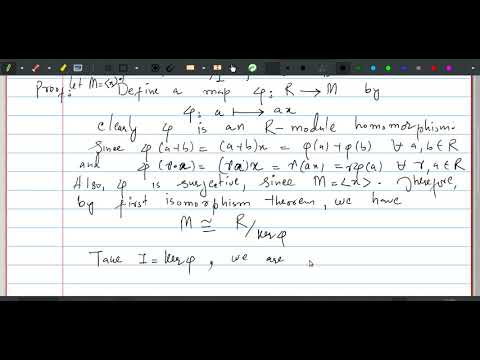 Proof: Let M=⟨x⟩. Define a map φ: R → M by
φ: a ⟼ ax
clearly φ is an R-module homomorphism.
Since φ(a+b) = (a+b)x = φ(a)+φ(b) ∀ a,b∈R
and φ(ra) = (ra)x = r(ax) = rφ(a) ∀ r,a∈R
Also, φ is surjective, since M=⟨x⟩. Therefore,
by first isomorphism theorem, we have
M ≅ R/kerφ
Take I = kerφ, we are